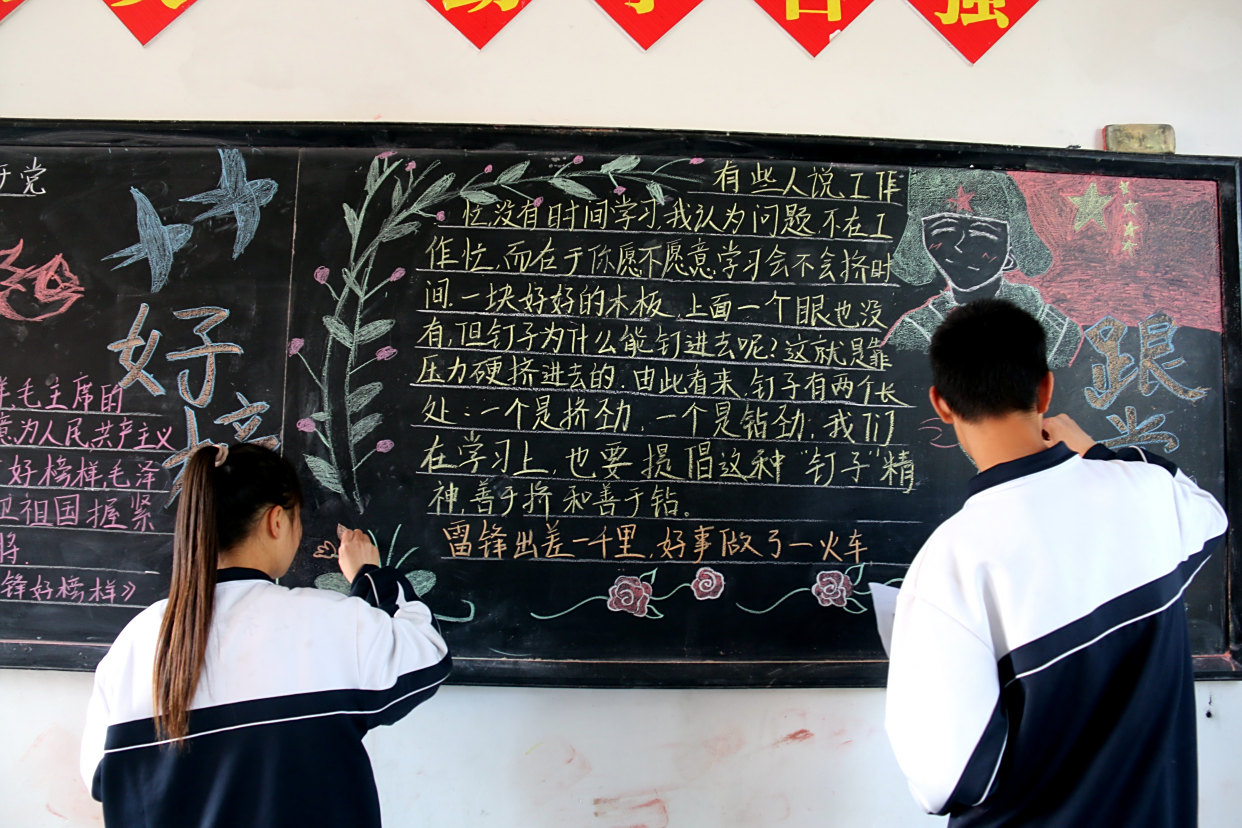 强
于党
好
榜
样毛主席的
意,为人民,共产主义
好榜样,毛泽
卫祖国握紧
将.
锋好榜样》
有些人说,工作
忙没有时间学习,我认为问题不在工
作忙,而在于你愿不愿意学习会不会挤时
间.一块好好的木板,上面一个眼也没
有,但钉子为什么能钉进去呢?这就是靠
压力硬挤进去的.由此看来,钉子有两个长
处:一个是挤劲,一个是钻劲,我们
在学习上,也要提倡这种"钉子"精
神,善于挤和善于钻。
雷锋出差一千里,好事做了一火车
跟